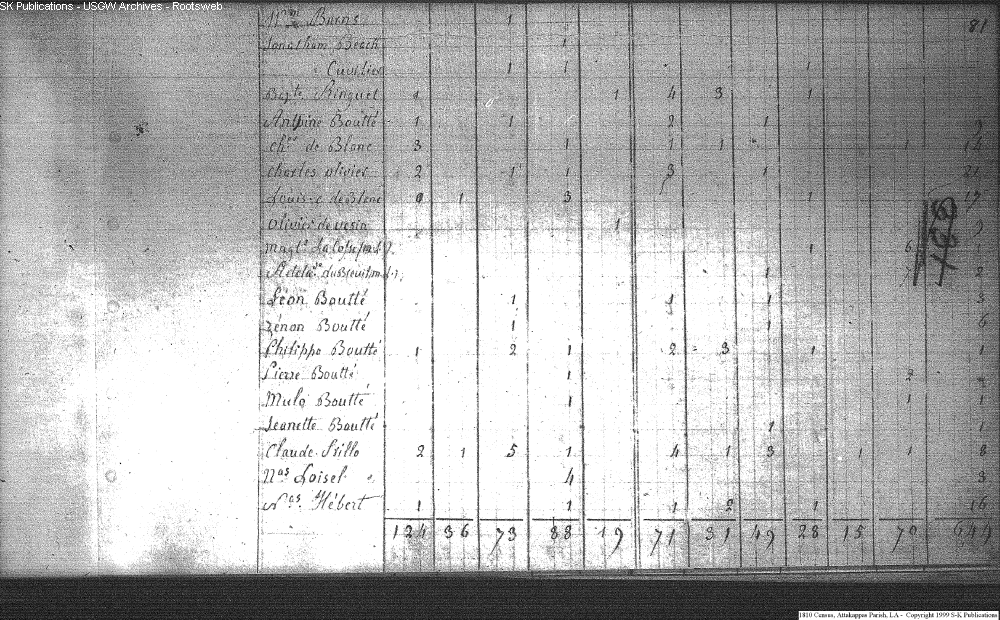 SK Publications - USGW Archives - Rootsweb
Wm Burns 1 81
Jonathan Beach 1
Cuvilier 1 1 1
Bapte Ringuet 1 1 4 3 1
Antoine Boutté 1 1 2 1
Chs de Blanc 3 1 1 1 1 14
Charles olivier 2 1 1 3 1 21
Louis c de Blanc 1 3 1
Olivier de vesin 1
1 6
1 2
Léon Boutté 1 1 1 3
Zénon Boutté 1 1 6
Philippe Boutté 1 2 1 2 3 1 1
Pierre Boutté 1 2
Mulo Boutté 1 1 1
Jeanette Boutté 1 1
Claude 2 1 5 1 4 1 3 1 1 8
Nas Loisel 4 3
Nas Hébert 1 1 1 2 1 16
124 36 73 88 19 71 31 49 28 15 70 644
168
1810 Census, Attakappas Parish, LA - Copyright 1999 S-K Publications